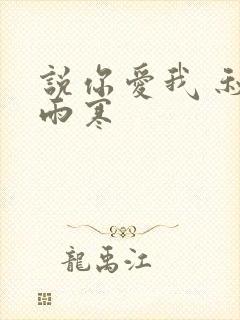 説你愛我
雨寒
龍禹江